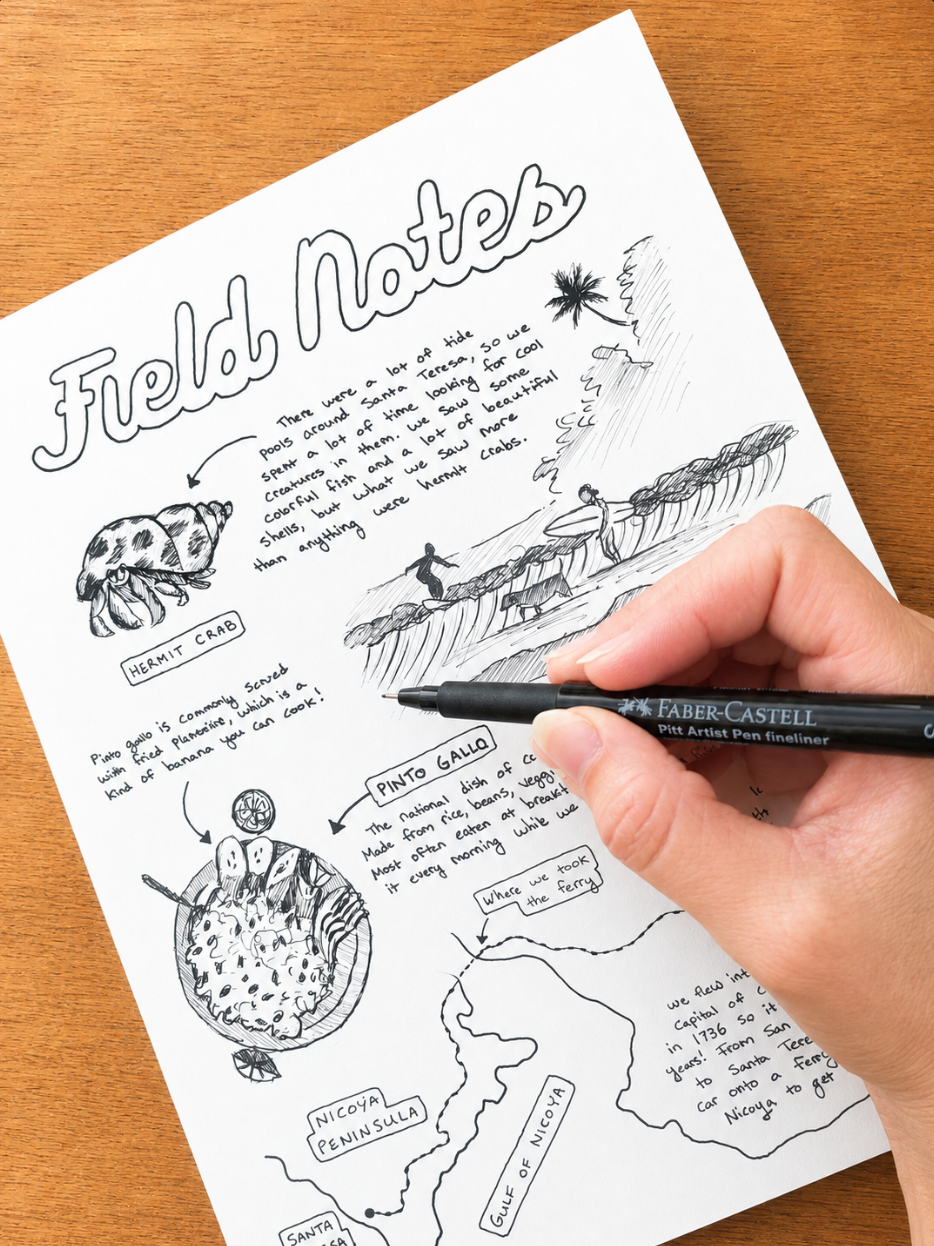 Field Notes
There were a lot of tide
pools around Santa Teresa, so we
spent a lot of time looking for cool
creatures in them. We saw some
colorful fish and a lot of beautiful
shells, but what we saw more
than anything were hermit crabs.
HERMIT CRAB
Pinto gallo is commonly served
with fried which is a
kind of banana you can cook!
PINTO GALLO
The national dish of
Made from rice, beans,
Most often eaten at
it every morning while we
FABER-CASTELL
Pitt Artist Pen fineliner
Where we took
the ferry
We flew
Capital of
in 1736 so it
years! From San
to Santa
car onto a ferry
Nicoya to get
NICOYA
PENINSULA
GULF OF NICOYA
SANTA